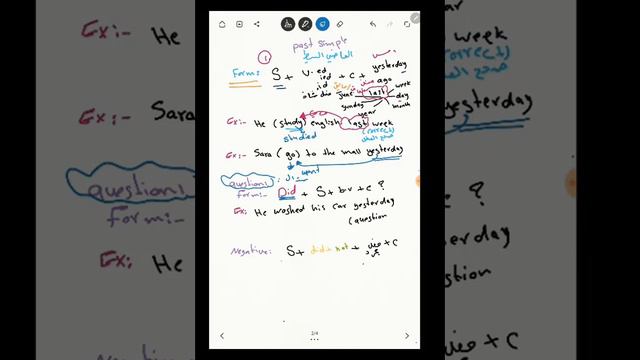 ① past simple
الماضي البسيط
Form: S + v. ed + c + yesterday
ied ago
.d last week
شاذ June day
sunday year month
Ex:- He (study) english last week
studied (correct)
Ex:- Sara (go) to the mall yesterday
went
question:
Form:- Did + S + bv + c ?
Ex: He washed his car yesterday
(question
Negative: S + did + not + + c
2/4